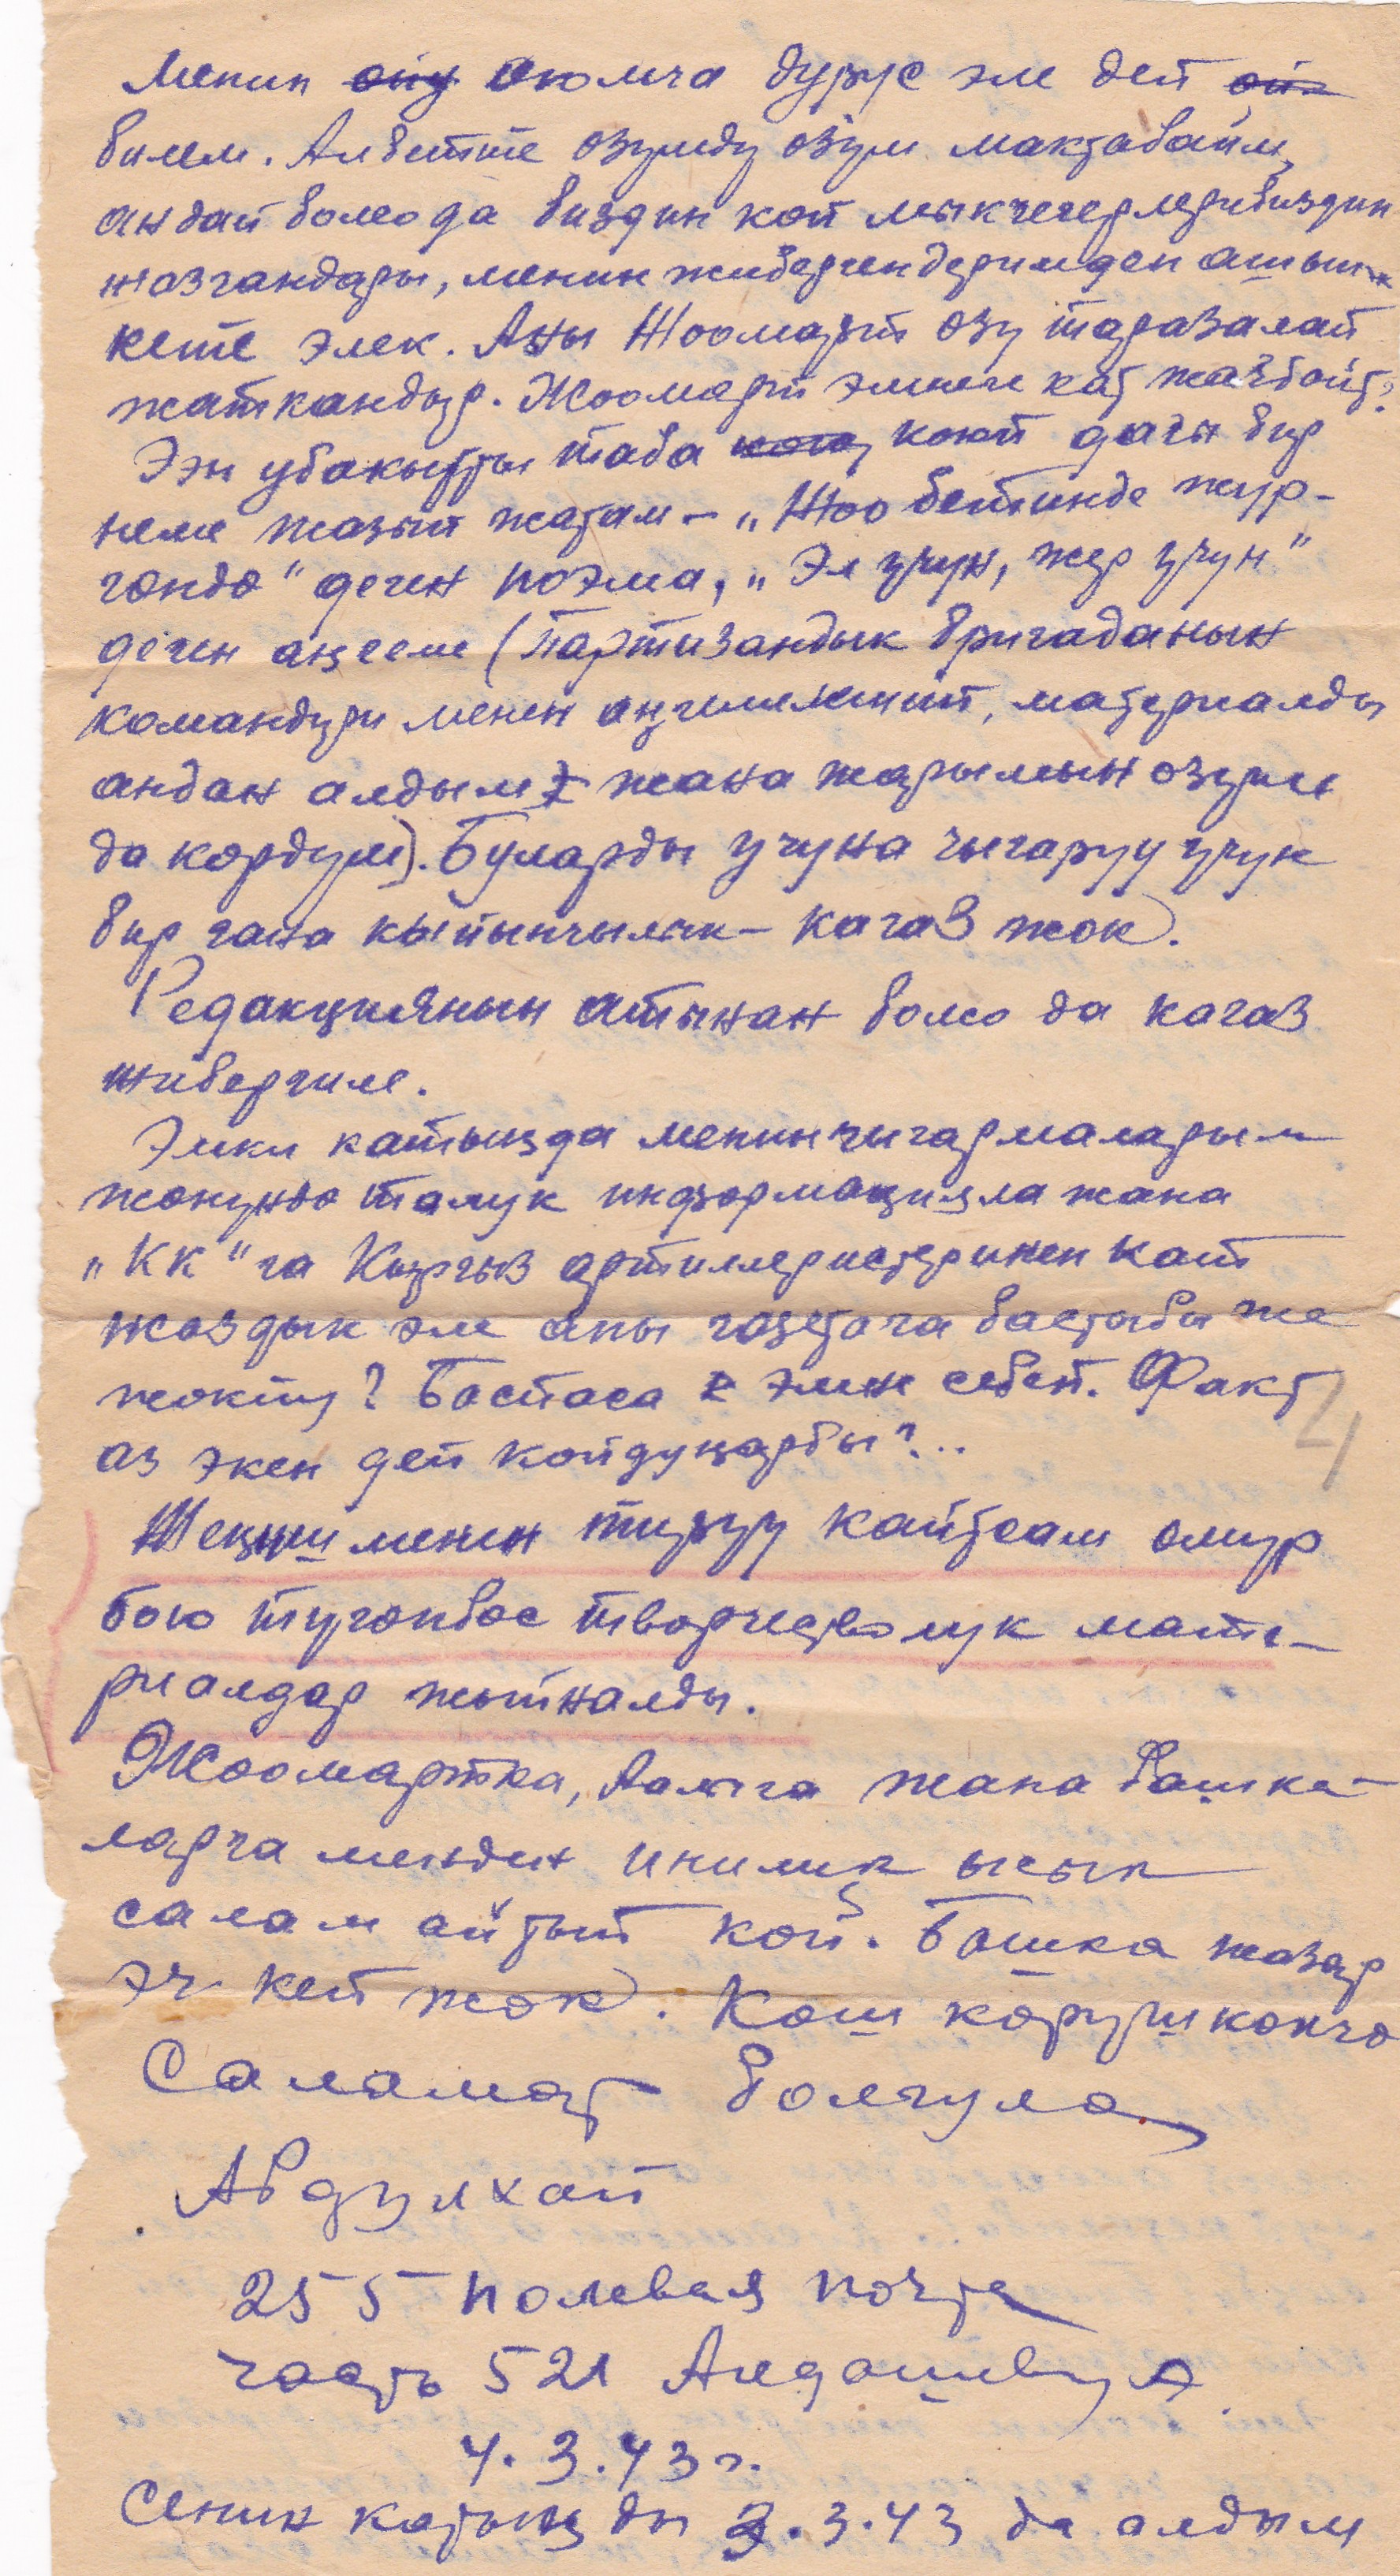 Менин оюмча дурус эле деп
билем. Албетте озумду озум мактабайм,
андай болсо да биздин кой
жазгандары, менин жибергендеримден ашып
кете элек. Аны Жоомарт озу таразалап
жаткандыр. Жоомарт эмне кат жазбайт?
Ээн убакытты таба коюп дагы бир
неме жазып жатам – „Жоо бетинде жур-
гондо" деген поэма, „Эл учун, жер учун"
деген аңгеме (Партизандык бригаданын
командири менен аңгемелешип, материалды
андан алдым жана жарымын озум
да кордум). Буларды учуна чыгаруу учун
бир гана кыйынчылык – кагаз жок.
Редакциянын атынан болсо да кагаз
жибергиле.
Эмки катыңда менин чыгармаларым
жонундо толук информацияла жана
„КК"га Кыргыз артиллеристеринен кат
жаздык эле аны газетага бастыбы же
жокпу? Баспаса эмне себеп. Факт
аз экен деп койдуңарбы?..
Жеңиш менен тируу кайтсам омур
бою тугонбос творчестволук мате-
риалдар жыйналды.
Жоомартка, Аалыга жана башка-
ларга менден инилик ысык
салам айтып кой. Башка жазар
эч кеп жок. Кош корушкончо
Саламат болгула
Абдулхай
255 полевая почта
часть 521 Алдашеву А.
4.3.43 г.
Сенин катыңды 3.3.43 да алдым